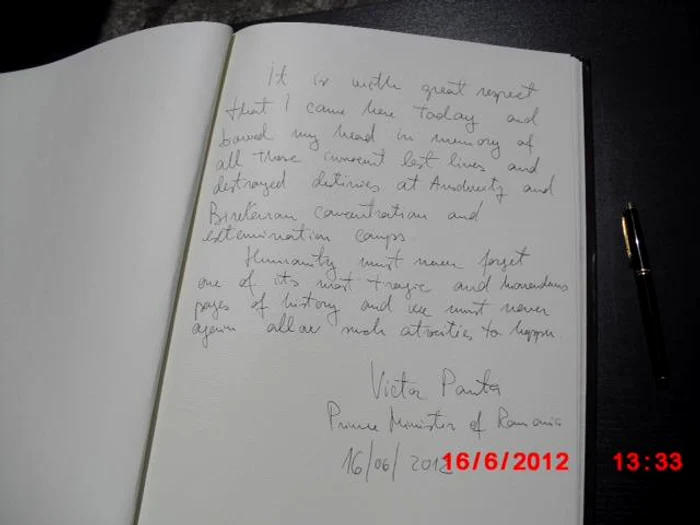 It is with great respect
that I came here today and
bowed my head in memory of
all those innocent lost lives and
destroyed destinies at Auschwitz and
Birkenau concentration and
extermination camps.
Humanity must never forget
one of its most tragic and horrendous
pages of history and we must never
again allow such atrocities to happen.
Victor Ponta
Prime Minister of Romania
16/06/2012
16/6/2012 13:33